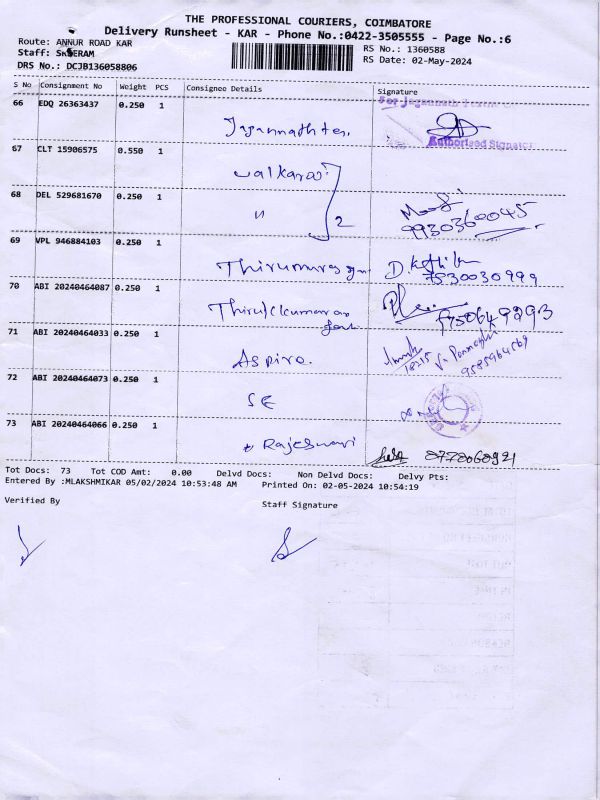 THE PROFESSIONAL COURIERS, COIMBATORE
Delivery Runsheet - KAR - Phone No.:0422-3505555 - Page No.:6
Route: ANNUR ROAD KAR RS No.: 1360588
Staff: RS Date: 02-May-2024
DRS No.: DCJB136058806
S No Consignment No Weight PCS Consignee Details Signature
66 EDQ 26363437 0.250 1 For Jagannath
Jagannath tex. Authorised Signatory
67 CLT 15906575 0.550 1
68 DEL 529681670 0.250 1
〃 2 9930360045
69 VPL 946884103 0.250 1
Thirumurugan 7530030999
70 ABI 20240464087 0.250 1
Thirukkumaran
71 ABI 20240464033 0.250 1
Aspire. 9585964569
72 ABI 20240464073 0.250 1
SE
73 ABI 20240464066 0.250 1
Rajeswari
Tot Docs: 73 Tot COD Amt: 0.00 Delvd Docs: Non Delvd Docs: Delvy Pts:
Entered By :MLAKSHMIKAR 05/02/2024 10:53:48 AM Printed On: 02-05-2024 10:54:19
Verified By Staff Signature